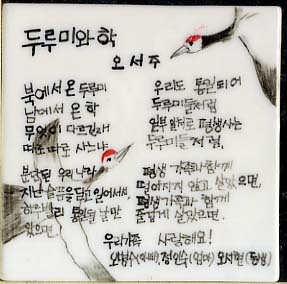 두루미와 학
오서주
북에서 온 두루미
남에서 온 학
무엇이 다르길래
따로 따로 사느냐
분단된 우리나라
지난 슬픔을 딛고 일어서서
하루빨리 통일될 날만
있으면,
우리도 통일되어
두루미들처럼
일부일처로 평생사는
두루미들처럼,
평생 가족과 함께
떨어지지 않고 살았으면,
평생 가족과 함께
즐겁게 살았으면.
우리가족 사랑해요!
(아빠), 정인숙(엄마) 오서현(동생)